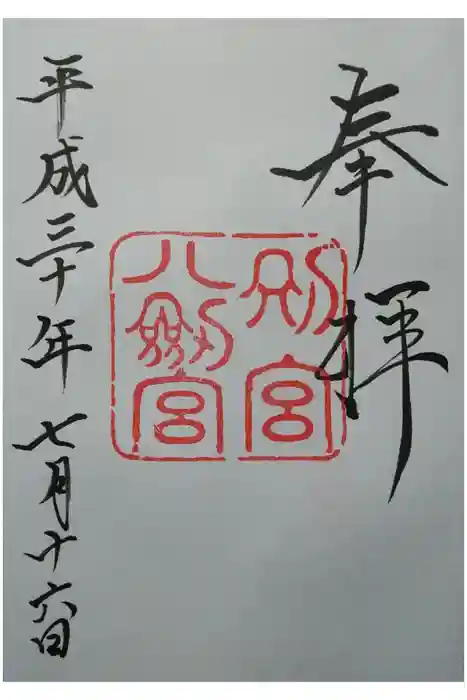 奉拝
別宮
八剱宮
平成三十年七月十六日